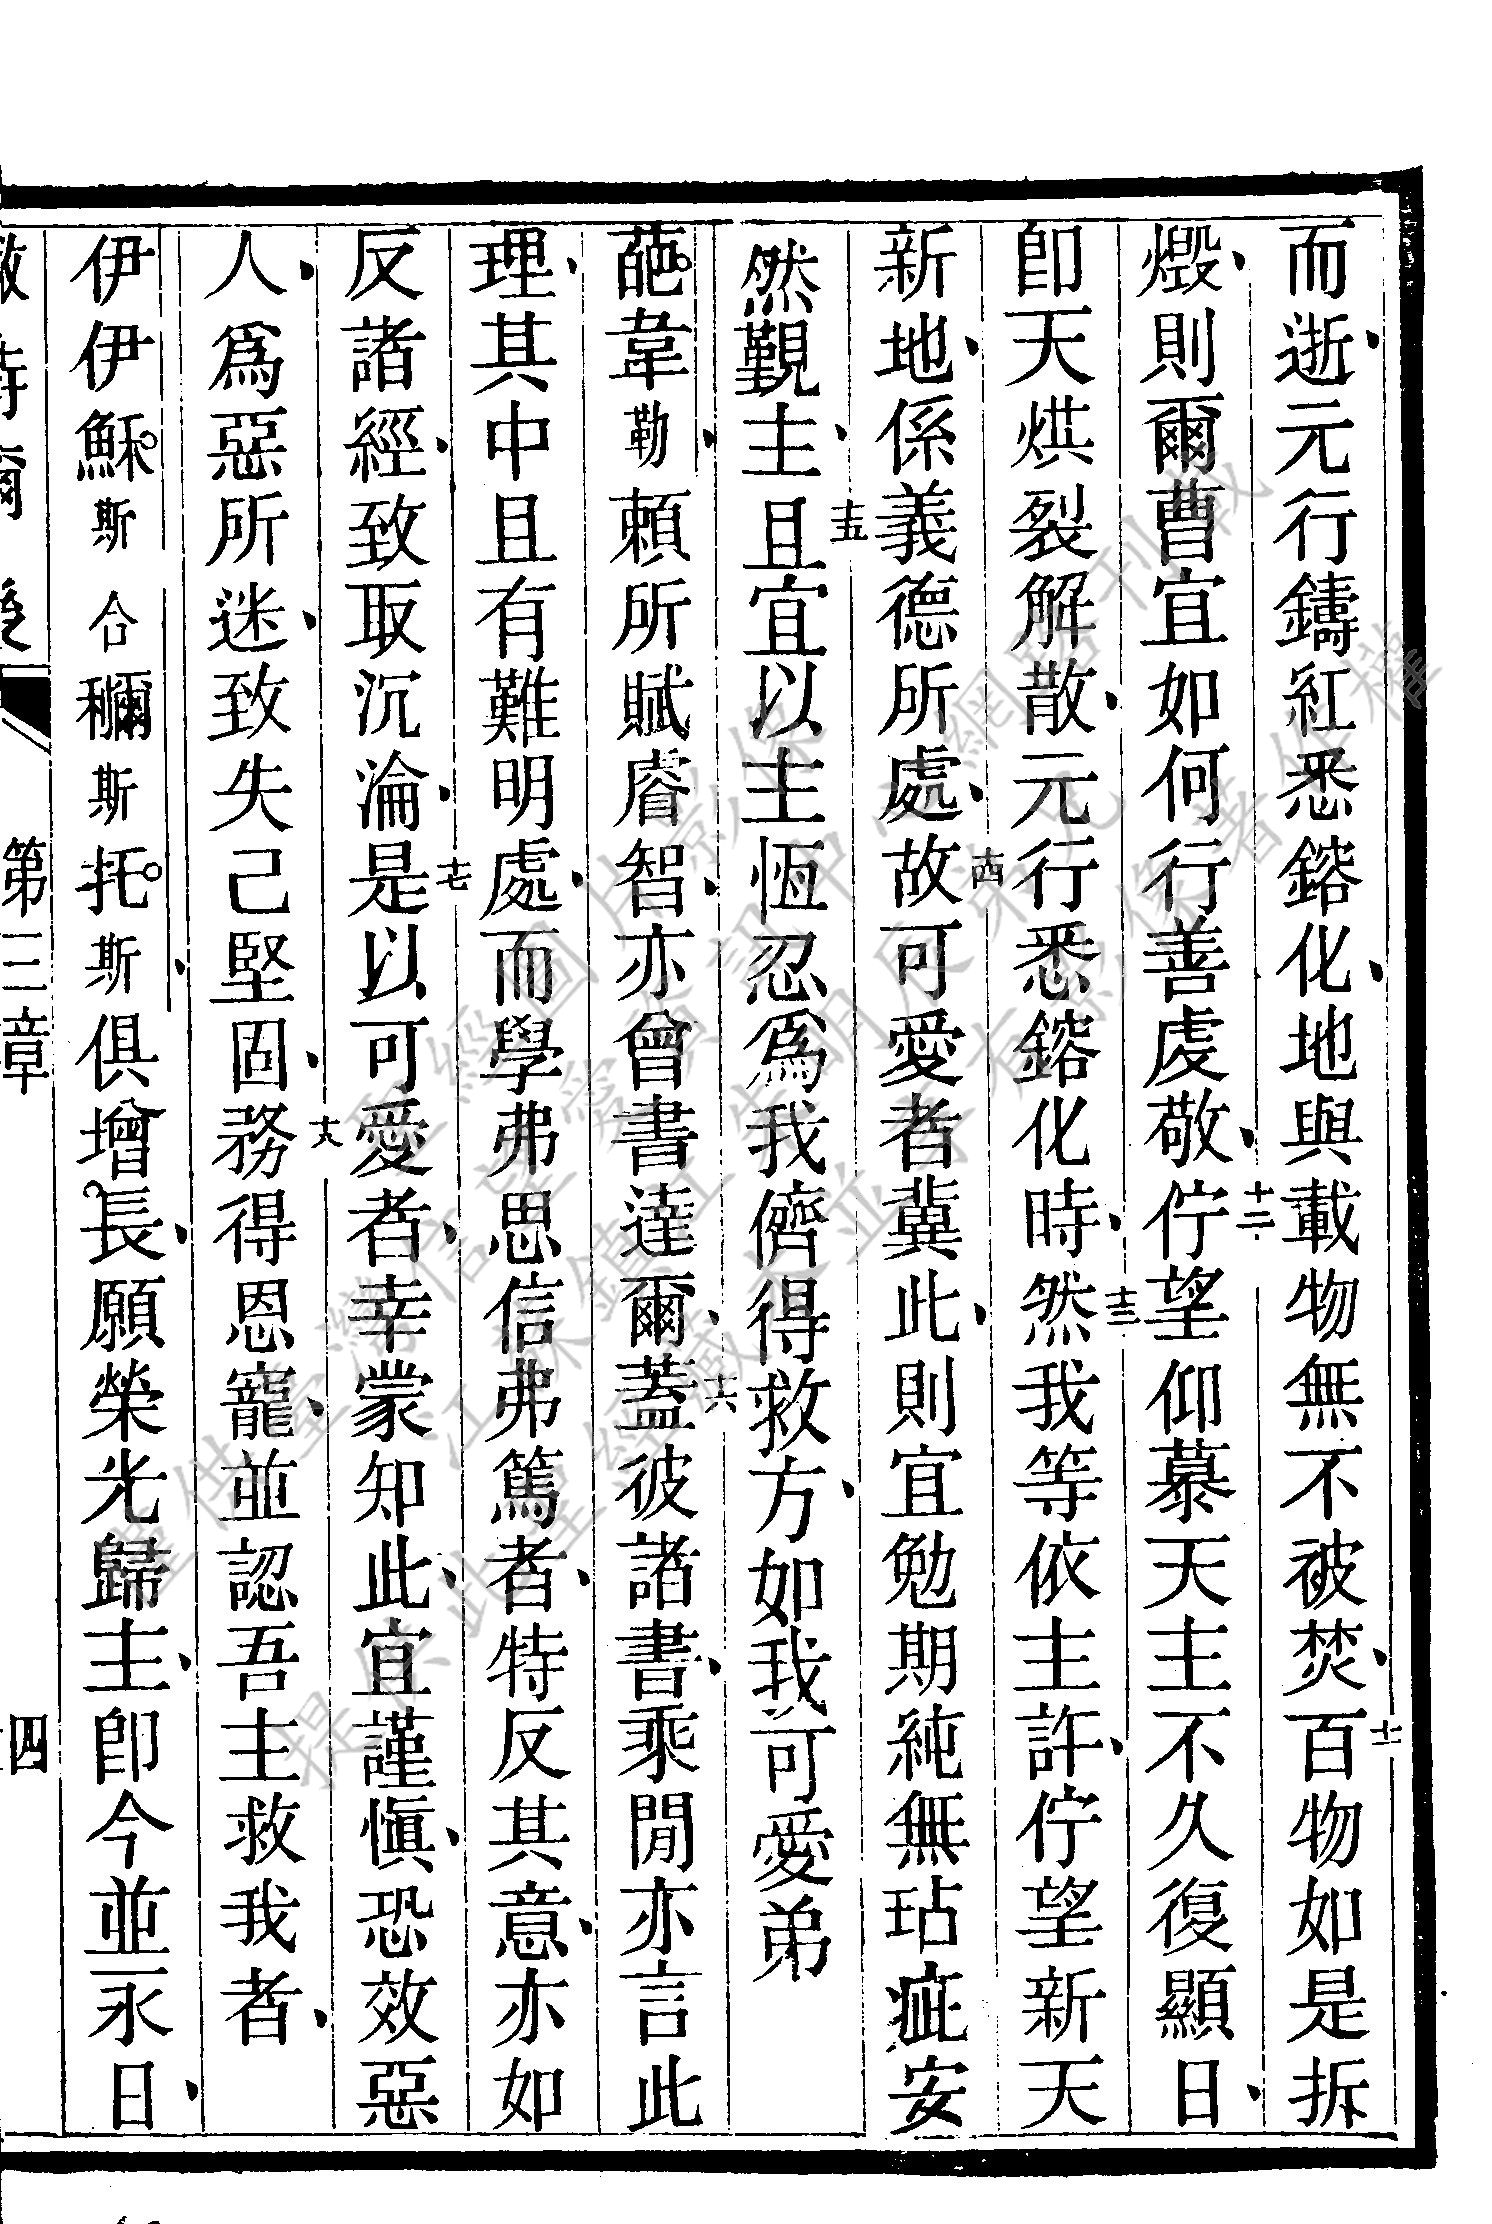 而逝、元行鑄紅悉鎔化、地與載物無不被焚、十一百物如是拆
燬、則爾曹宜如何行善虔敬、十二佇望仰慕天主不久復顯日、
卽天烘裂解散、元行悉鎔化時、十三然我等依主許、佇望新天
新地、係義德所處、十四故可愛者冀此、則宜勉期純無玷疵安
然覲主、十五且宜以主恆忍爲我儕得救方、如我可愛弟
葩韋勒、賴所賦睿智、亦曾書達爾、十六蓋彼諸書、乘閒亦言此
理、其中且有難明處、而學弗思信弗篤者、特反其意、亦如
反諸經、致取沉淪、十七是以可愛者、幸蒙知此、宜謹愼、恐效惡
人、爲惡所迷、致失己堅固、十八務得恩寵、並認吾主救我者、
伊伊穌斯合穪斯托斯、俱增長、願榮光歸主、卽今並永日、
第三章
四